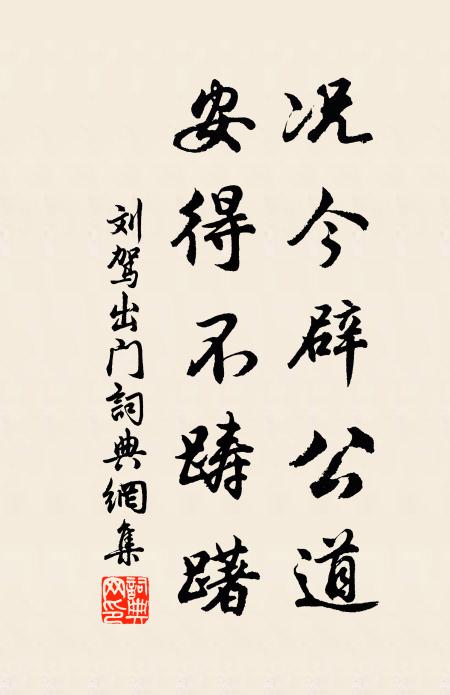 况今辟公道
安得不踌躇
刘驾出门詞典網集
詞典网印